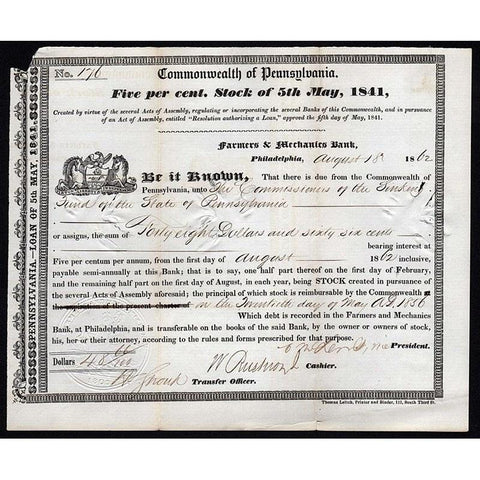 No. 176
Commonwealth of Pennsylvania.
Five per cent. Stock of 5th May, 1841,
Created by virtue of the several Acts of Assembly, regulating or incorporating the several Banks of this Commonwealth, and in pursuance
of an Act of Assembly, entitled "Resolution authorizing a Loan," approved the fifth day of May, 1841.
Farmers & Mechanics Bank,
Philadelphia, August 18 1862
Be it Known, That there is due from the Commonwealth of
Pennsylvania, unto The Commissioners of the Sinking
Fund of the State of Pennsylvania
or assigns, the sum of Forty eight Dollars and sixty six cents
bearing interest at
Five per centum per annum, from the first day of August 1862 inclusive,
payable semi-annually at this Bank; that is to say, one half part thereof on the first day of February,
and the remaining half part on the first day of August, in each year, being STOCK created in pursuance
of the several Acts of Assembly aforesaid; the principal of which stock is reimbursable by the Commonwealth
of the present charter in the Twentieth day of May A.D.
Which debt is recorded in the Farmers and Mechanics
Bank, at Philadelphia, and is transferable on the books of the said Bank, by the owner or owners of stock,
his, her or their attorney, according to the rules and forms prescribed for that purpose.
President.
Dollars 48 66/100
Cashier.
Transfer Officer.
Thomas Leitch, Printer and Binder, 112, South Third St.
PENNSYLVANIA.—LOAN OF 5th MAY, 1841.